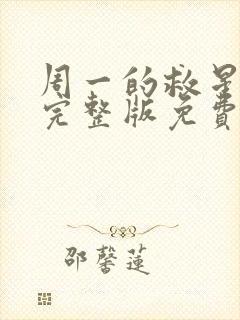 周一的救星
完整版免费
邵馨莲